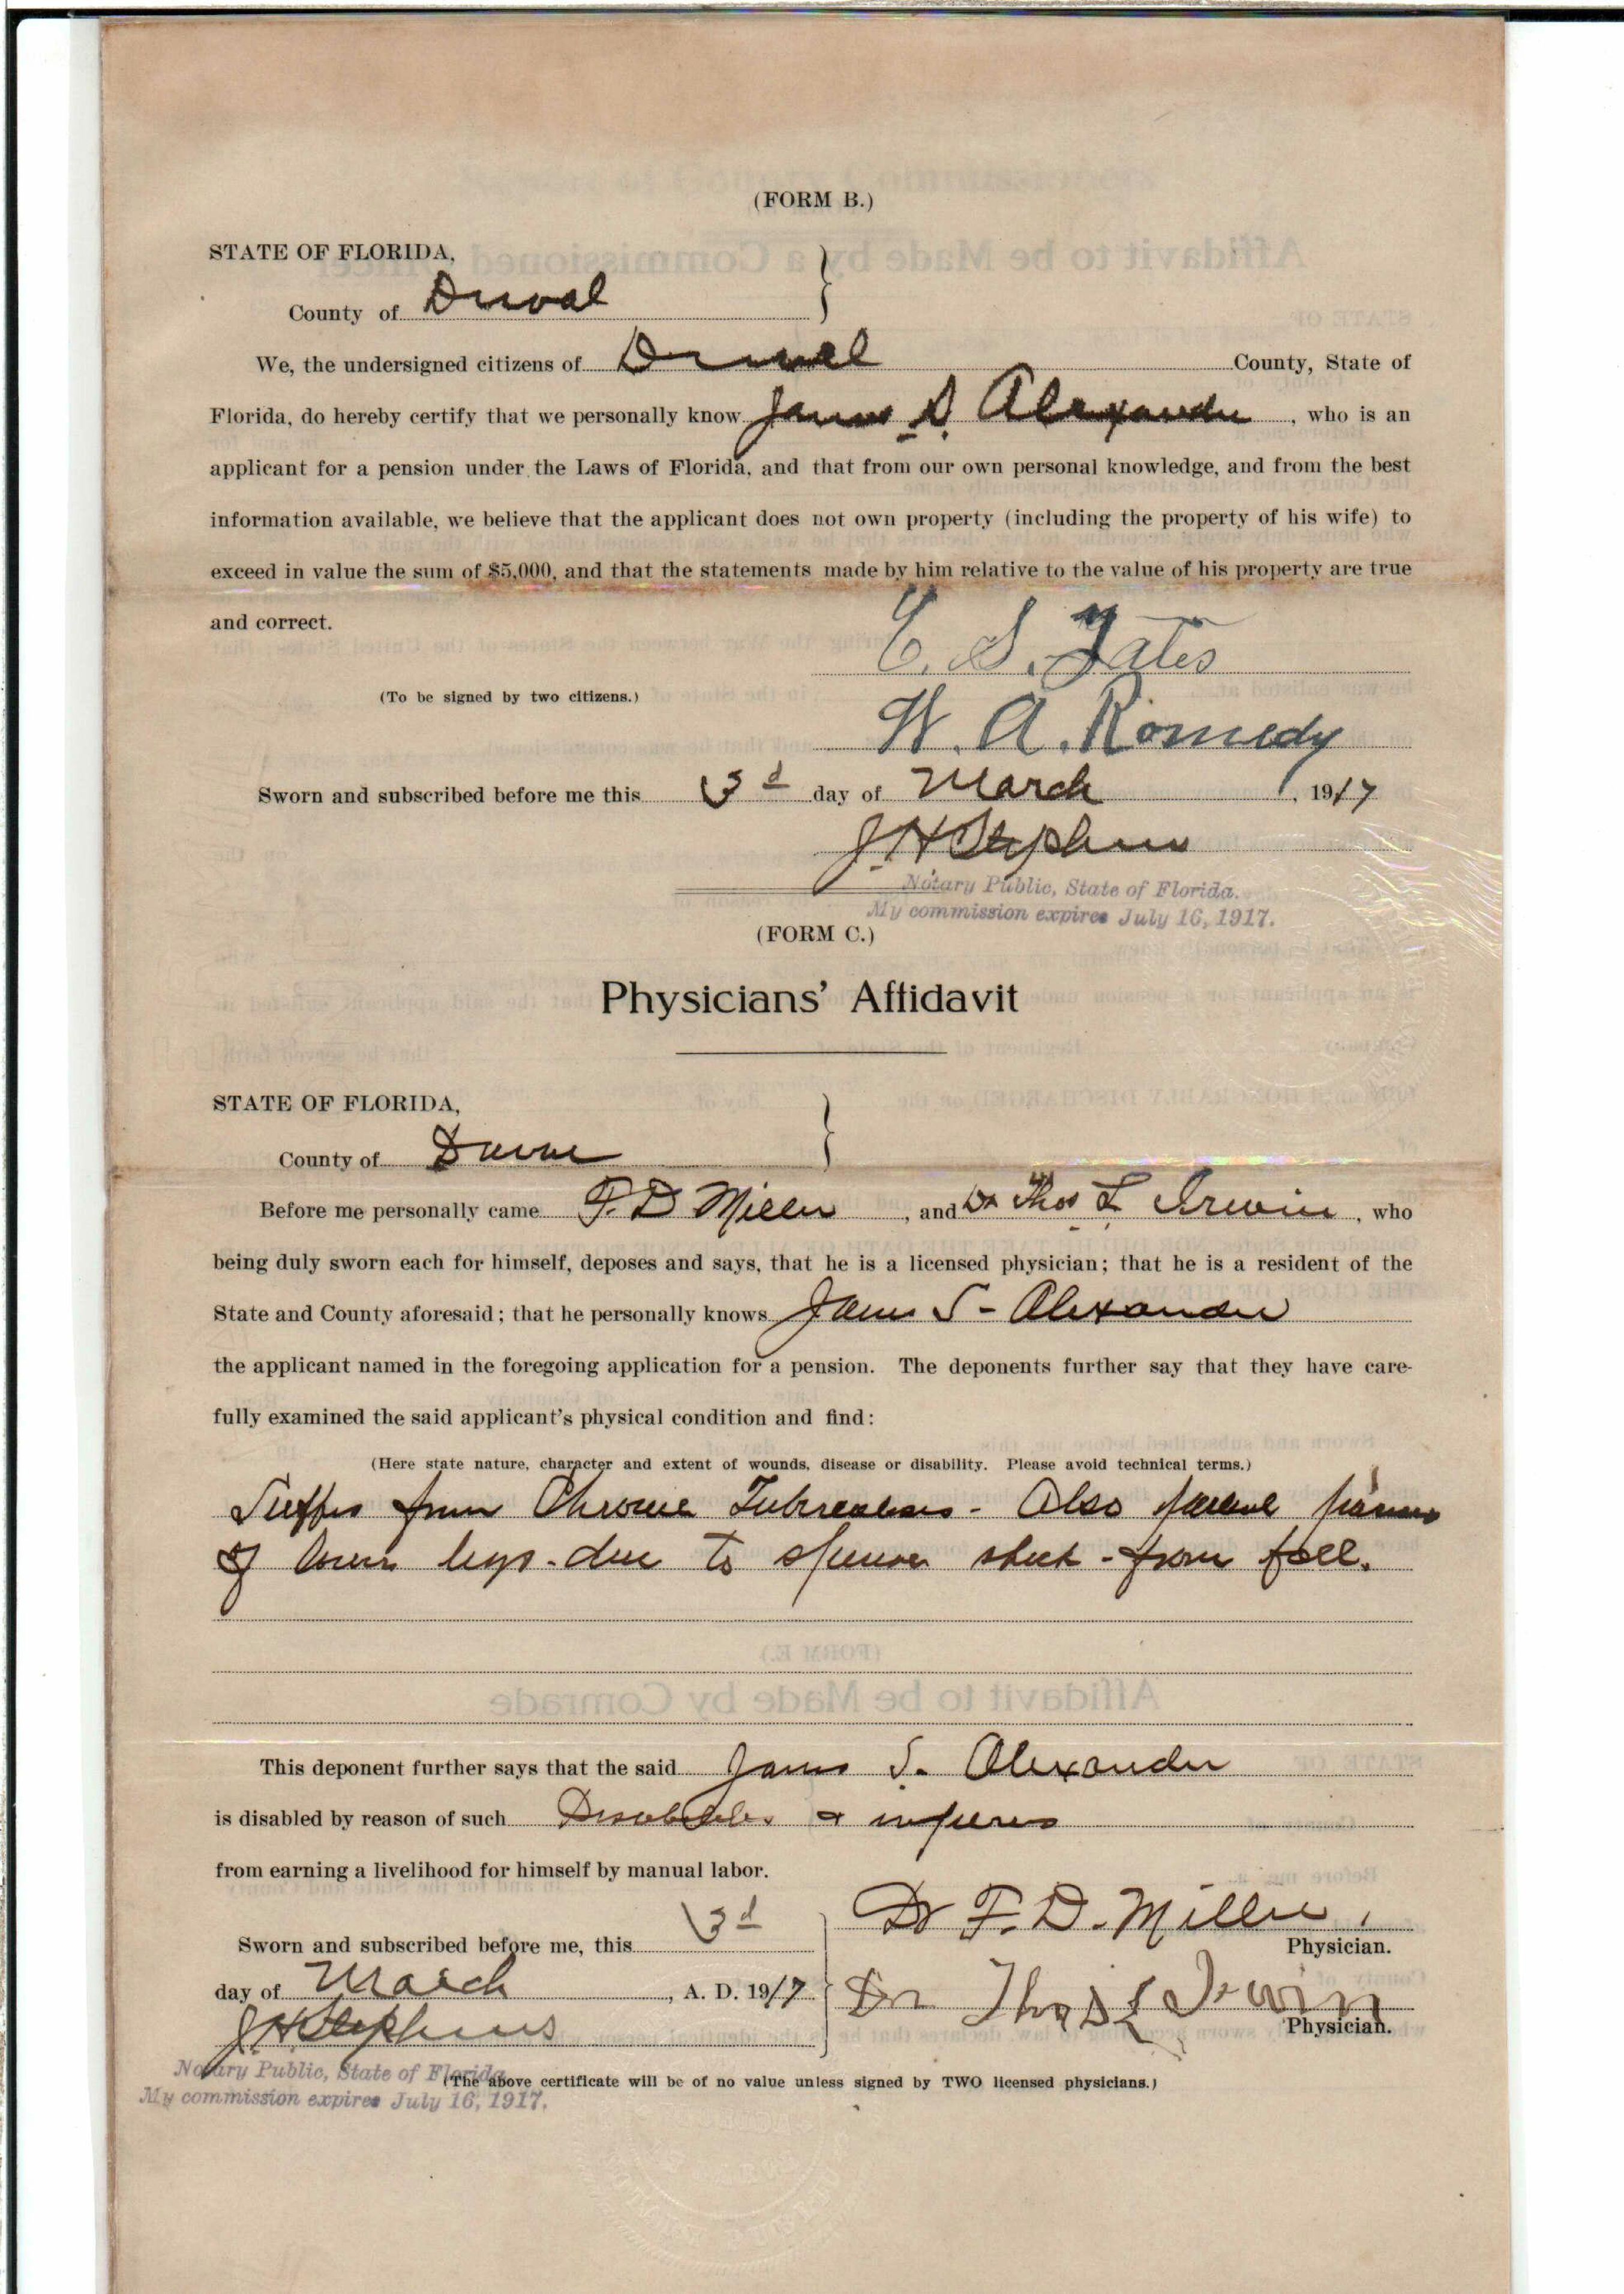 (FORM B.)
STATE OF FLORIDA,
County of Duval
We, the undersigned citizens of Duval County, State of
Florida, do hereby certify that we personally know James S. Alexander, who is an
applicant for a pension under the Laws of Florida, and that from our own personal knowledge, and from the best
information available, we believe that the applicant does not own property (including the property of his wife) to
exceed in value the sum of $5,000, and that the statements made by him relative to the value of his property are true
and correct.
C. S. Yates
(To be signed by two citizens.)
W. A. Romedy
Sworn and subscribed before me this 3d day of March, 1917
J. H Stephens
Notary Public, State of Florida.
My commission expires July 16, 1917.
(FORM C.)
Physicians' Affidavit
STATE OF FLORIDA,
County of Duval
Before me personally came F. D Miller, and Dr Thos L Irwin, who
being duly sworn each for himself, deposes and says, that he is a licensed physician; that he is a resident of the
State and County aforesaid; that he personally knows James S - Alexander
the applicant named in the foregoing application for a pension. The deponents further say that they have care-
fully examined the said applicant's physical condition and find:
(Here state nature, character and extent of wounds, disease or disability. Please avoid technical terms.)
Suffers from Chronic Tuberculosis - Also
of lower legs - due to shock - from fall.
This deponent further says that the said James S. Alexander
is disabled by reason of such & injuries
from earning a livelihood for himself by manual labor.
Sworn and subscribed before me, this 3d
day of March, A. D. 1917
J. H Stephens
Notary Public, State of Florida
My commission expires July 16, 1917.
Dr F. D. Miller,
Physician.
Dr Thos L Irwin
Physician.
(The above certificate will be of no value unless signed by TWO licensed physicians.)